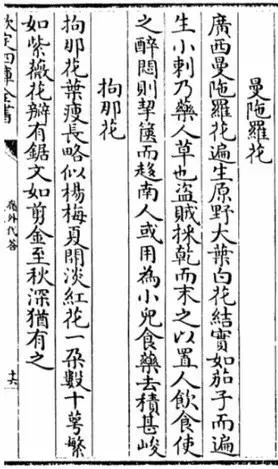 曼陁羅花
廣西曼陁羅花遍生原野大葉白花結實如茄子而遍
生小刺乃藥人草也盜賊採乾而末之以置人飲食使
之醉悶則挈篋而趍南人或用為小兒食藥去積甚峻
拘那花
拘那花葉瘦長略似楊梅夏開淡紅花一朶數十萼繁
如紫薇花瓣有鋸文如剪金至秋深猶有之
欽定四庫全書
嶺外代答
十六